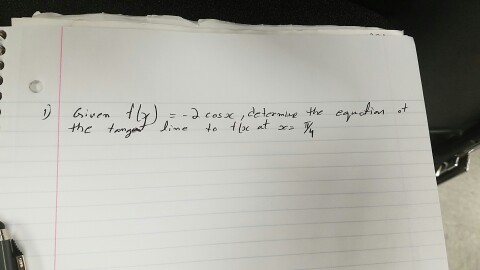 1) Given f(x) = -2 cosx, determine the equation of
the tangent line to f(x at x= π/4